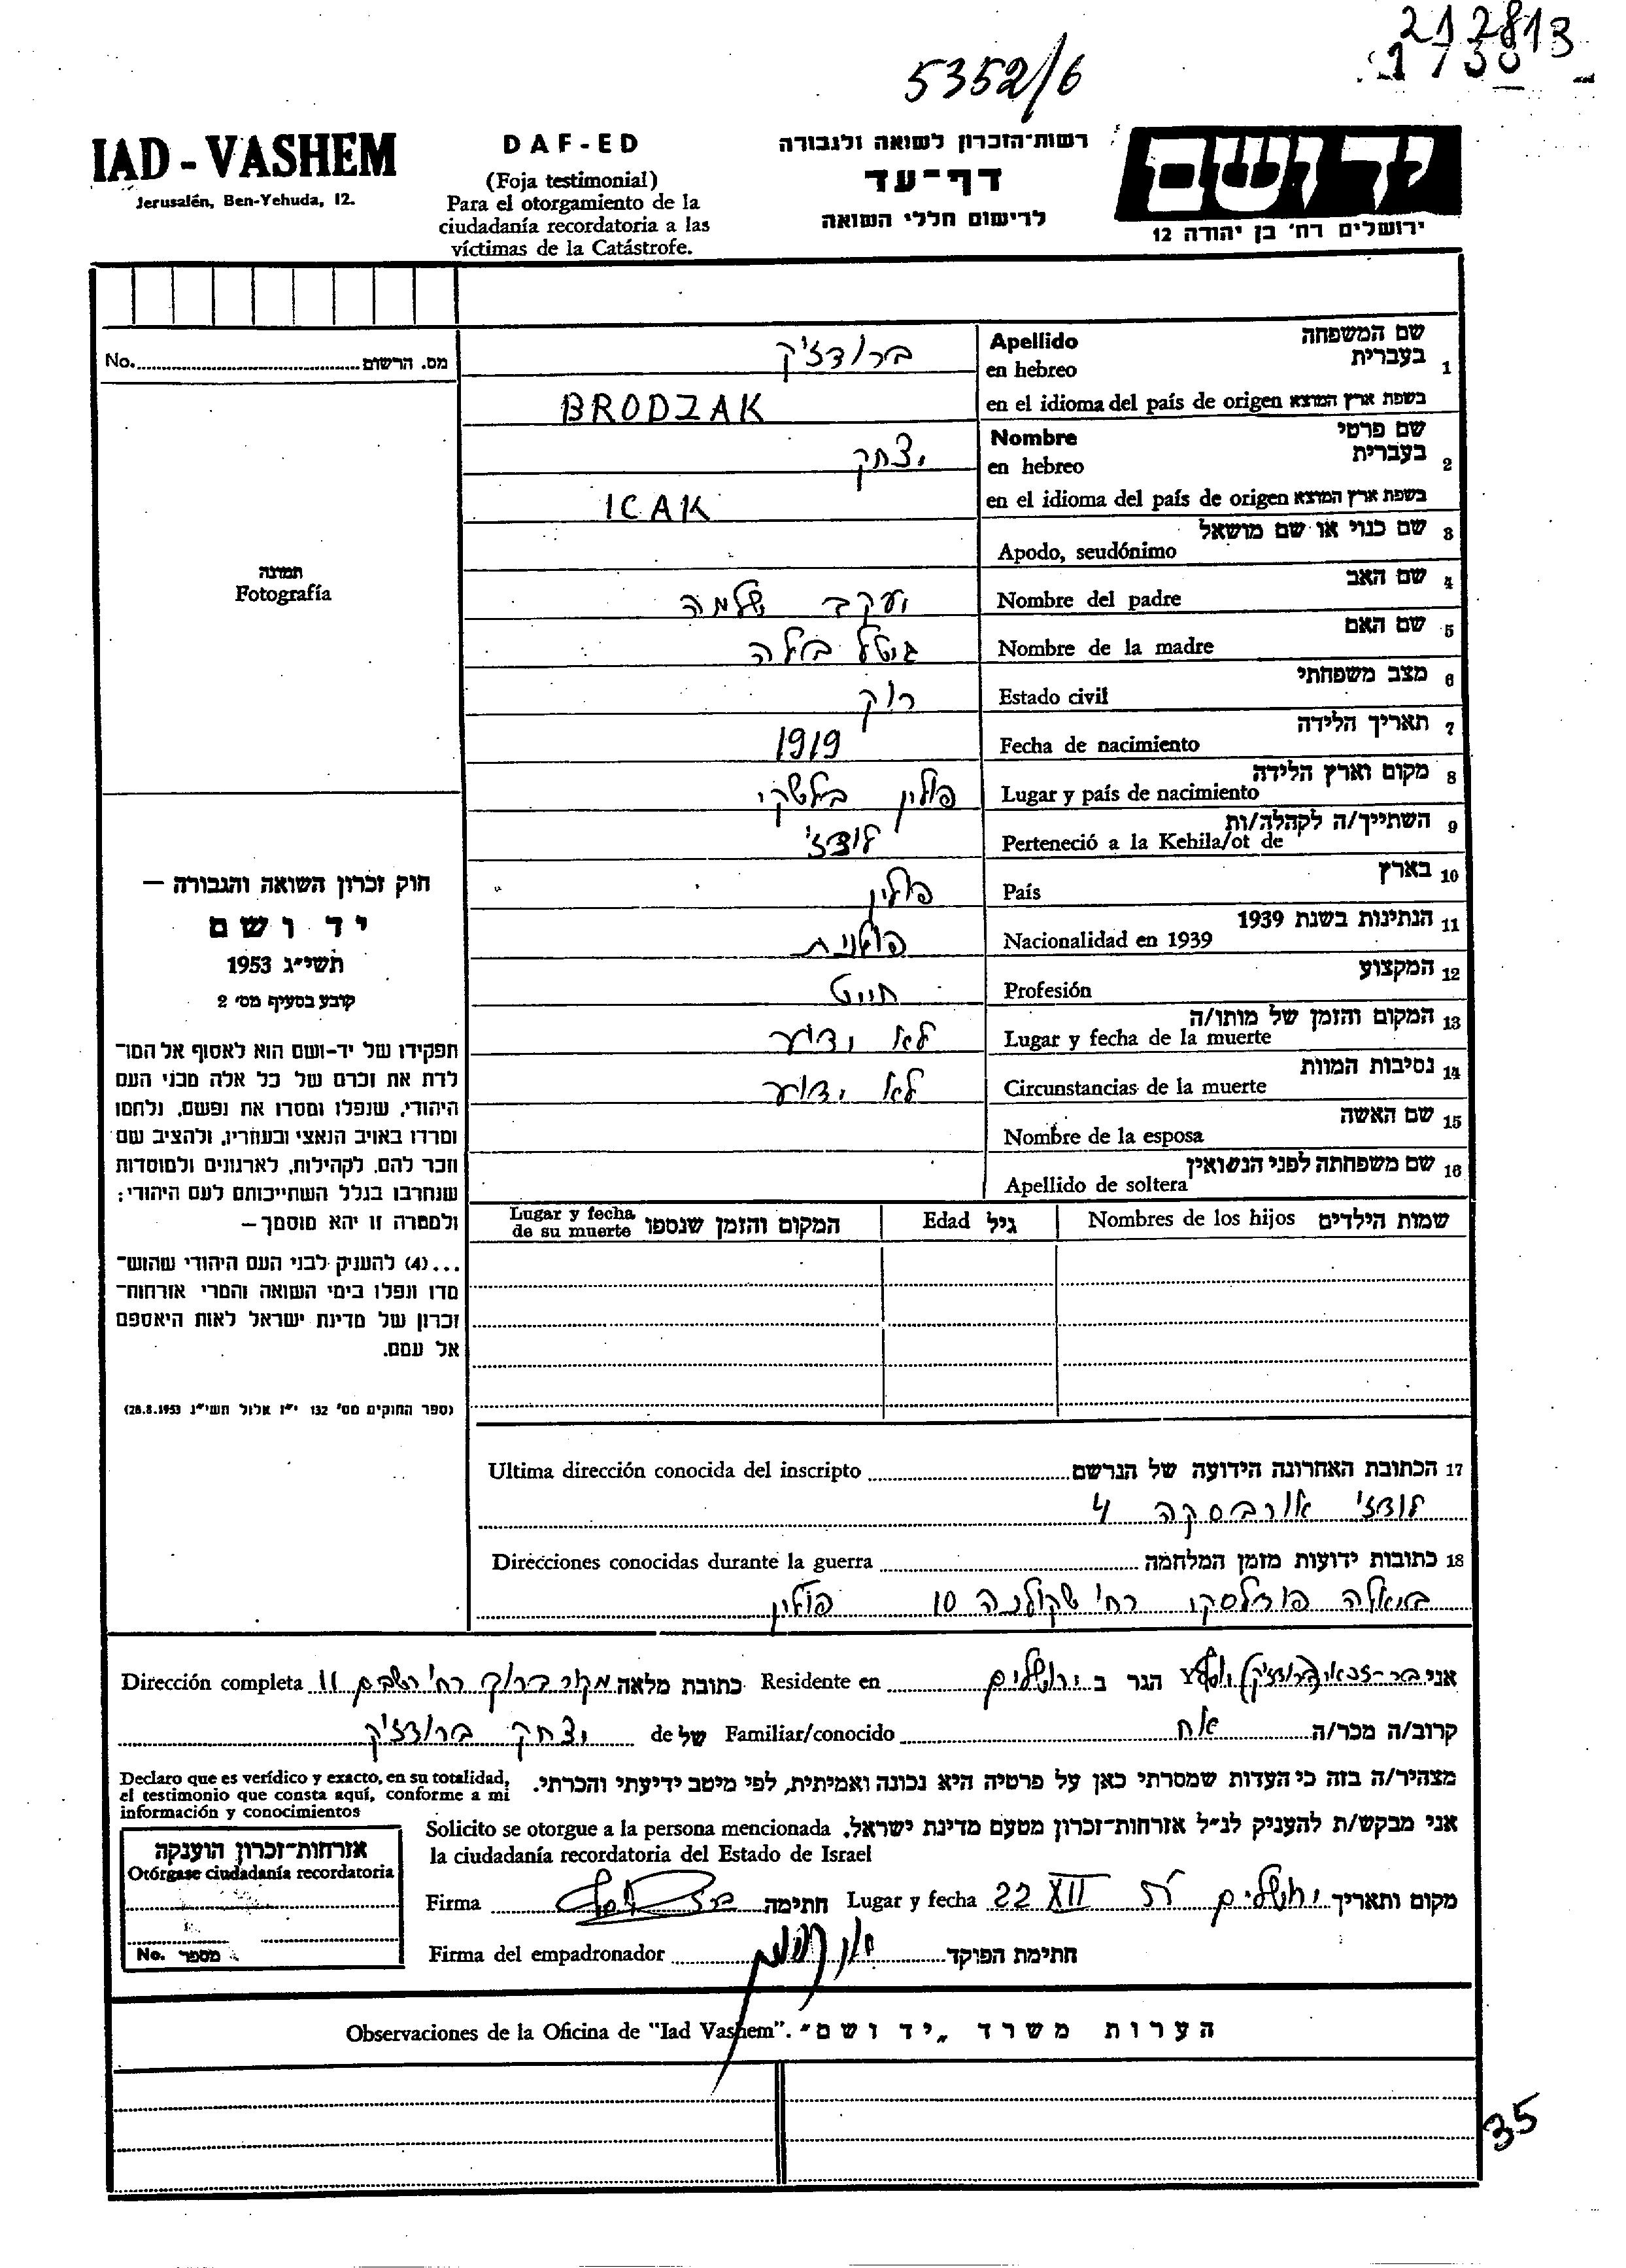 212813
1738
5352/6
IAD - VASHEM
Jerusalén, Ben-Yehuda, 12.
DAF-ED
(Foja testimonial)
Para el otorgamiento de la
ciudadanía recordatoria a las
víctimas de la Catástrofe.
רשות־הזכרון לשואה ולגבורה
דף־עד
לרישום חללי השואה
יד ושם
ירושלים רח' בן יהודה 12
No. מס. הרשום
תמונה
Fotografía
שם המשפחה
1 בעברית Apellido en hebreo ברודז'ק
בשפת ארץ המוצא en el idioma del país de origen BRODZAK
שם פרטי
2 בעברית Nombre en hebreo יצחק
בשפת ארץ המוצא en el idioma del país de origen ICAK
3 שם כנוי או שם מושאל Apodo, seudónimo
4 שם האב Nombre del padre יעקב שלמה
5 שם האם Nombre de la madre גיטל ביילה
6 מצב משפחתי Estado civil רוק
7 תאריך הלידה Fecha de nacimiento 1919
8 מקום וארץ הלידה Lugar y país de nacimiento פולין
9 השתייך/ה לקהלה/ות Perteneció a la Kehila/ot de לודז'
10 בארץ País פולין
11 הנתינות בשנת 1939 Nacionalidad en 1939 פולנית
12 המקצוע Profesión חייט
13 המקום והזמן של מותו/ה Lugar y fecha de la muerte לא ידוע
14 נסיבות המוות Circunstancias de la muerte לא ידוע
15 שם האשה Nombre de la esposa
16 שם משפחתה לפני הנשואין Apellido de soltera
שמות הילדים Nombres de los hijos גיל Edad המקום והזמן שנספו Lugar y fecha de su muerte
חוק זכרון השואה והגבורה —
יד ושם
תשי״ג 1953
קובע בסעיף מס' 2
תפקידו של יד-ושם הוא לאסוף אל המו־
לדת את זכרם של כל אלה מבני העם
היהודי, שנפלו ומסרו את נפשם, נלחמו
ומרדו באויב הנאצי ובעוזריו, ולהציב שם
וזכר להם, לקהילות, לארגונים ולמוסדות
שנחרבו בגלל השתייכותם לעם היהודי;
ולמטרה זו יהא מוסמך —
...(4) להעניק לבני העם היהודי שהוש־
מדו ונפלו בימי השואה והמרי אזרחות־
זכרון של מדינת ישראל לאות היאספם
אל עמם.
(ספר החוקים מס' 132 י״ז אלול תשי״ג 28.8.1953)
17 הכתובת האחרונה הידועה של הנרשם Ultima dirección conocida del inscripto
לודז' אורבסקה 4
18 כתובות ידועות מזמן המלחמה Direcciones conocidas durante la guerra
ביאלה פודלסקי רח' שקולנה 10 פולין
אני בר-זכאי (ברודז'ק) יוסף הגר ב ירושלים Residente en כתובת מלאה מקור ברוך רח' רשב״ם 11 Dirección completa
קרוב/ה מכר/ה אח Familiar/conocido של de יצחק ברודז'ק
מצהיר/ה בזה כי העדות שמסרתי כאן על פרטיה היא נכונה ואמיתית, לפי מיטב ידיעתי והכרתי.
Declaro que es verídico y exacto, en su totalidad,
el testimonio que consta aquí, conforme a mi
información y conocimientos
אני מבקש/ת להעניק לנ״ל אזרחות־זכרון מטעם מדינת ישראל. Solicito se otorgue a la persona mencionada
la ciudadanía recordatoria del Estado de Israel
מקום ותאריך ירושלים 22 XII Lugar y fecha חתימה Firma
חתימת הפוקד Firma del empadronador
אזרחות־זכרון הוענקה
Otórgase ciudadanía recordatoria
No. מספר
Observaciones de la Oficina de "Iad Vashem". הערות משרד „יד ושם״
35